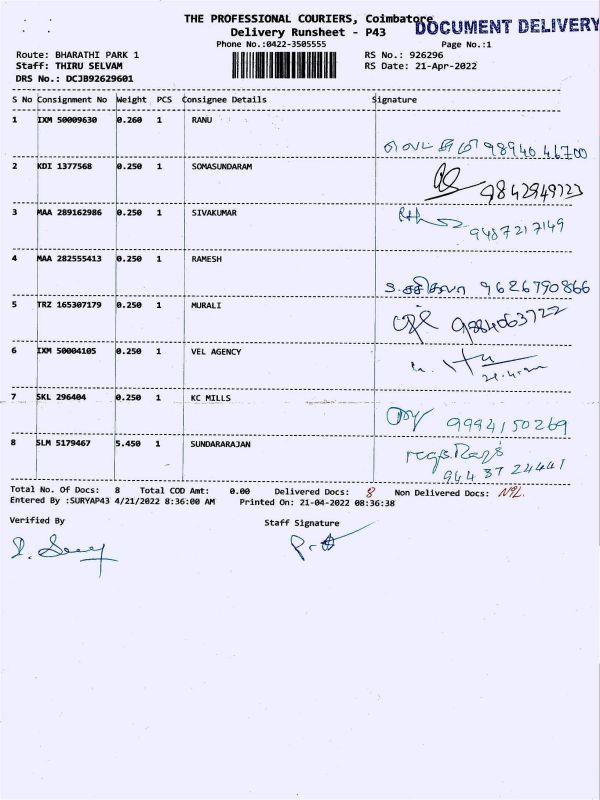 THE PROFESSIONAL COURIERS, Coimbatore
DOCUMENT DELIVERY
Delivery Runsheet - P43
Phone No.:0422-3505555
Page No.:1
Route: BHARATHI PARK 1
RS No.: 926296
Staff: THIRU SELVAM
RS Date: 21-Apr-2022
DRS No.: DCJB92629601
S No Consignment No Weight PCS Consignee Details Signature
1 IXM 50009630 0.260 1 RANU
9894046700
2 KDI 1377568 0.250 1 SOMASUNDARAM
9842949723
3 MAA 289162986 0.250 1 SIVAKUMAR
9487217149
4 MAA 282555413 0.250 1 RAMESH
9626790866
5 TRZ 165307179 0.250 1 MURALI
9884063722
6 IXM 50004105 0.250 1 VEL AGENCY
7 SKL 296404 0.250 1 KC MILLS
9994150269
8 SLM 5179467 5.450 1 SUNDARARAJAN
944 37 24441
Total No. Of Docs: 8 Total COD Amt: 0.00 Delivered Docs: 8 Non Delivered Docs: NIL.
Entered By :SURYAP43 4/21/2022 8:36:00 AM Printed On: 21-04-2022 08:36:38
Verified By
Staff Signature